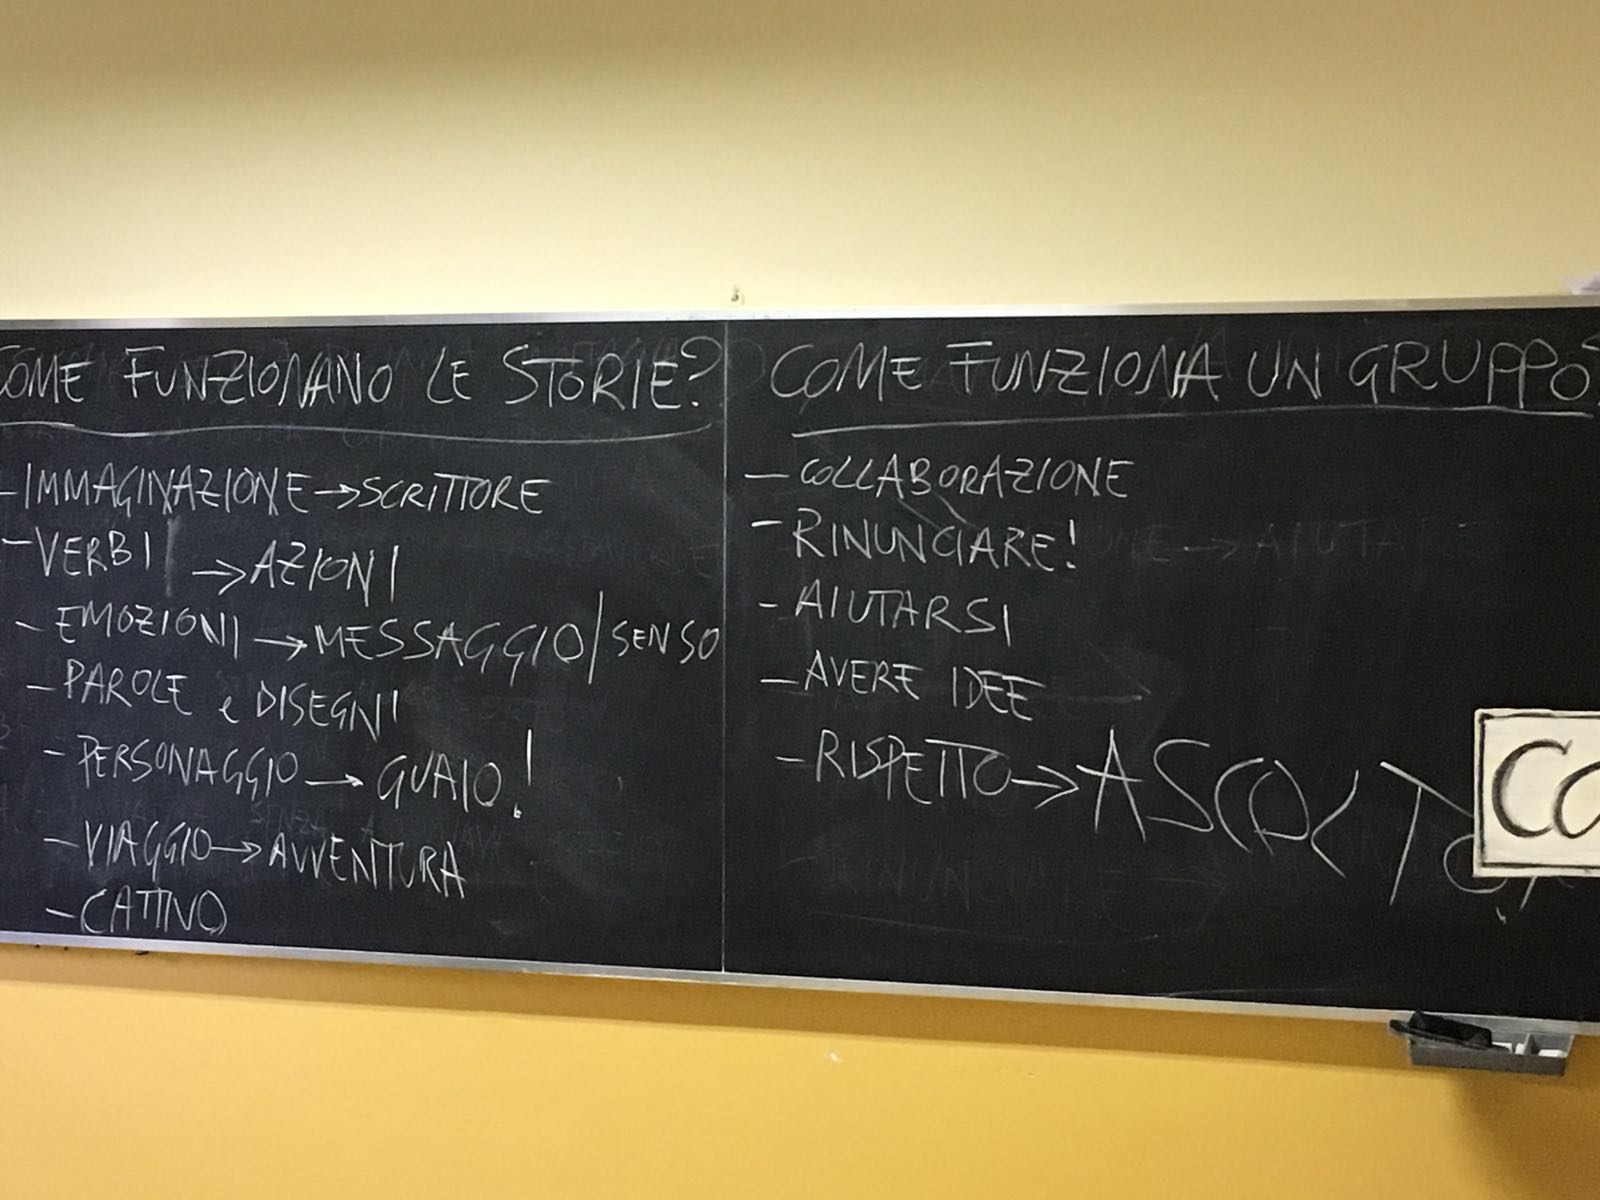 COME FUNZIONANO LE STORIE?
- IMMAGINAZIONE → SCRITTORE
- VERBI → AZIONI
- EMOZIONI → MESSAGGIO/SENSO
- PAROLE e DISEGNI
- PERSONAGGIO → GUAIO!
- VIAGGIO → AVVENTURA
- CATTIVO
COME FUNZIONA UN GRUPPO?
- COLLABORAZIONE
- RINUNCIARE!
- AIUTARSI
- AVERE IDEE
- RISPETTO → ASCOLTO